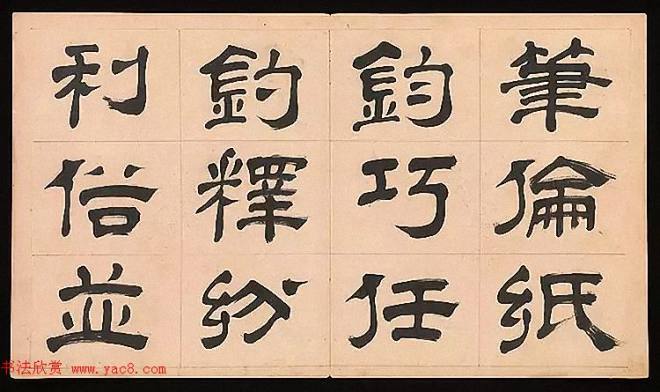 筆倫紙
鈞巧任
釣釋紛
利俗並
书法欣赏
www.yac8.com